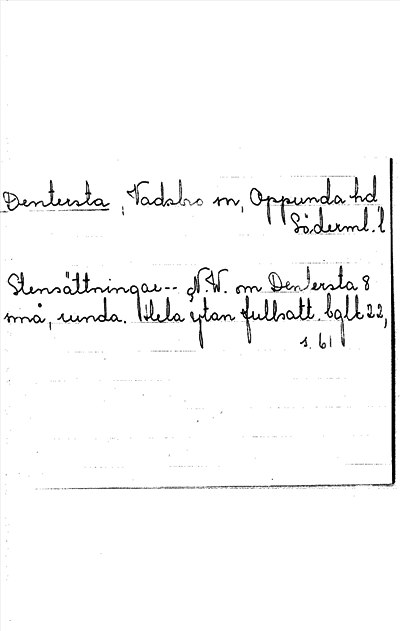 Dentersta, Vadsbro sn, Oppunda hd
Söderml. l
Stensättningar -- N.W. om Dentersta 8
små, runda. Hela ytan fullsatt. bglt 22,
s. 61